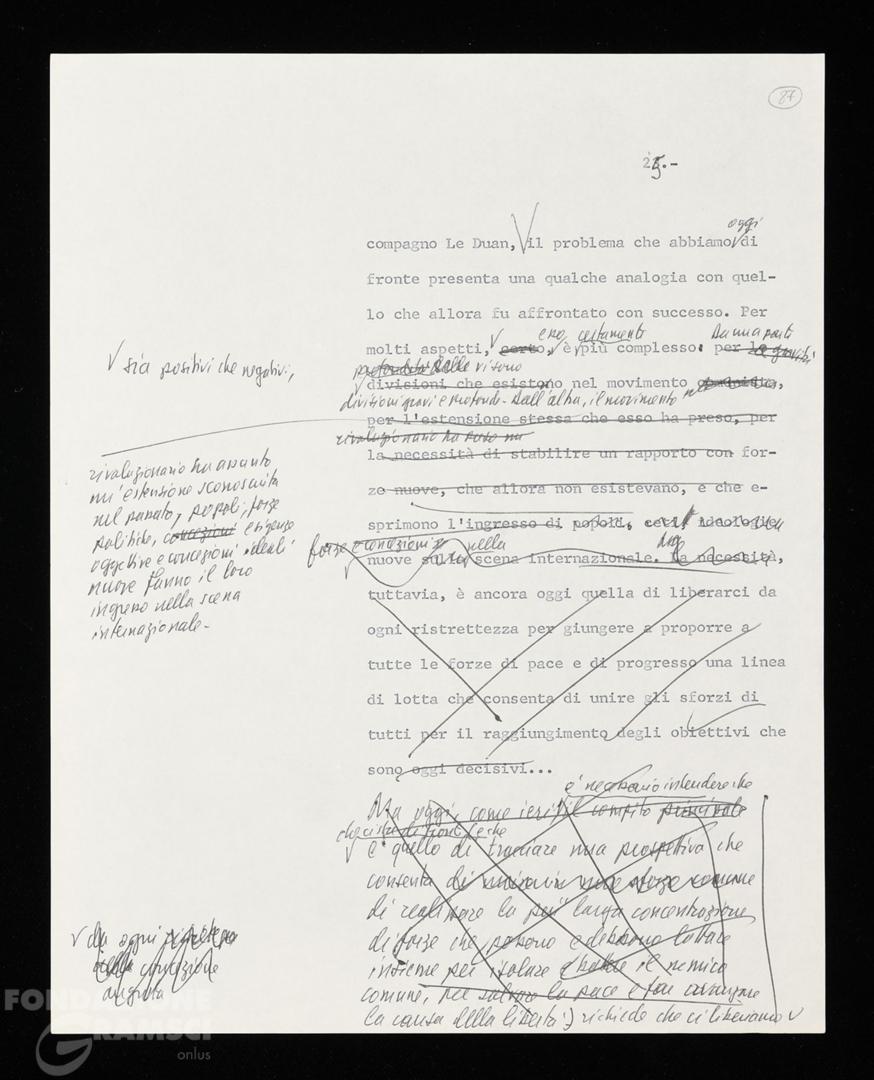 87
25.-
oggi
compagno Le Duan, il problema che abbiamo di
fronte presenta una qualche analogia con quel-
lo che allora fu affrontato con successo. Per
esso, certamente Da una parte
molti aspetti, certo, è più complesso: per le gravi
√ sia positivi che negativi,
profonde vi sono
divisioni che esistono nel movimento
divisioni gravi e profonde. Dall'altra, il movimento
per l'estensione stessa che esso ha preso, per
rivoluzionario ha
la necessità di stabilire un rapporto con for-
ze nuove, che allora non esistevano, e che e-
sprimono l'ingresso di popoli, ceti, ideologie
forze e concezioni nella
nuove sulla scena internazionale. La necessità,
rivoluzionario ha assunto
un'estensione sconosciuta
nel passato, popoli, forze
politiche, concezioni esigenze
oggettive e concezioni ideali
nuove fanno il loro
ingresso nella scena
internazionale.
tuttavia, è ancora oggi quella di liberarci da
ogni ristrettezza per giungere a proporre a
tutte le forze di pace e di progresso una linea
di lotta che consenta di unire gli sforzi di
tutti per il raggiungimento degli obiettivi che
sono oggi decisivi...
è necessario intendere che
Ma oggi, come ieri, il compito principale
che ci sta di fronte
è quello di tracciare una prospettiva che
consenta di comune
di realizzare la più larga concentrazione
di forze che possono e debbono lottare
insieme per isolare e battere il nemico
comune, per salvare la pace e far avanzare
la causa della libertà) richiede che ci liberiamo √
√ da ogni
concezione
angusta
FONDAZIONE
GRAMSCI
onlus